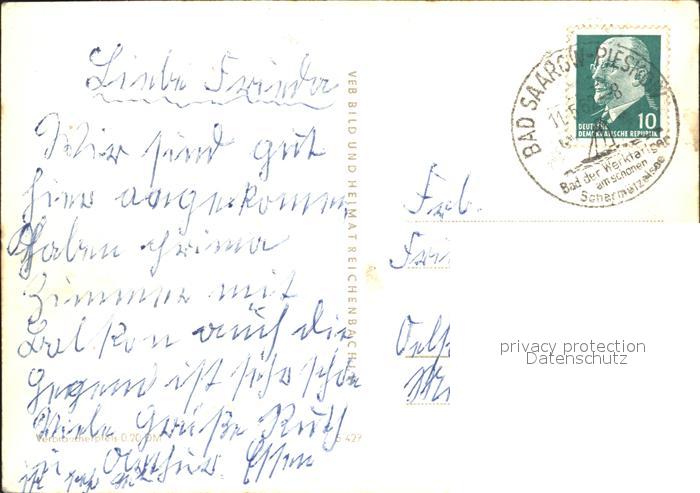 Liebe Frieda
Wir sind gut
hier angekommen
Haben prima
Zimmer mit
Balkon auch die
Gegend ist sehr schön
Viele Grüße Ruth
u. Arthur Essen
ist sehr gut
VEB BILD UND HEIMAT REICHENBACH i. V.
Verbraucherpreis 0,20 DM
DEUTSCHE
DEMOKRATISCHE REPUBLIK
10
BAD SAAROW-PIESKOW
Bad der Werktätigen
am schönen
Scharmützelsee
Frl.
privacy protection
Datenschutz